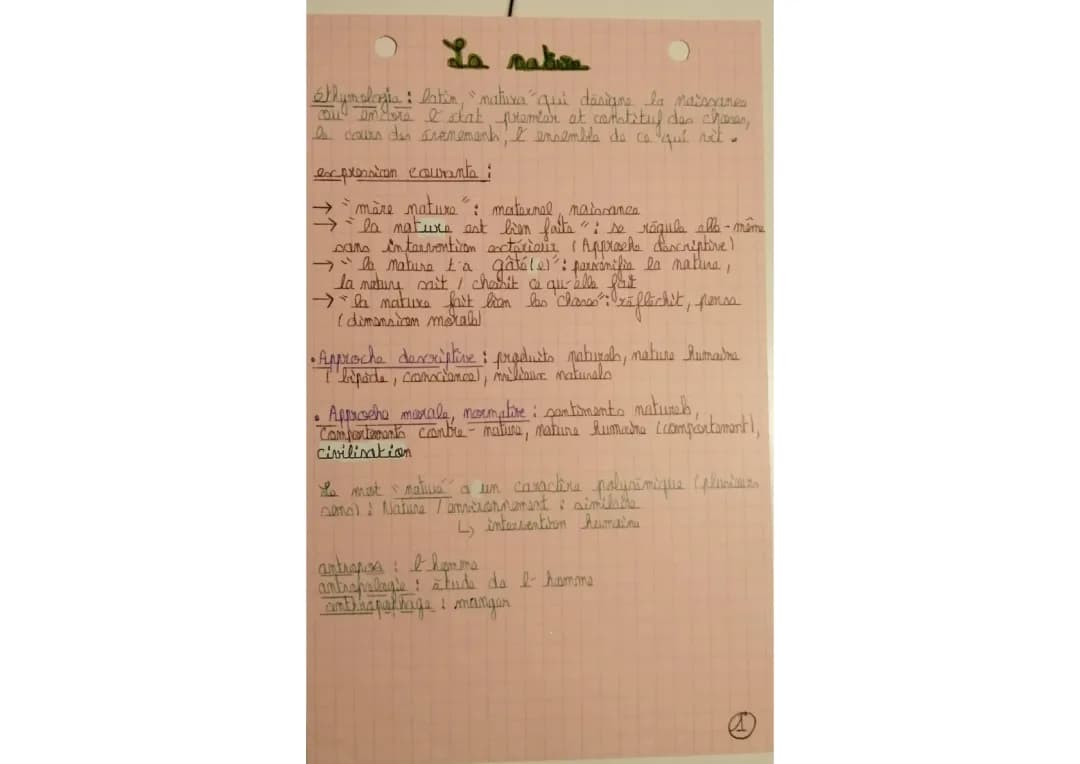 La nature
éthymologie : latin "natura" qui désigne la naissance
ou encore l'état premier et constitutif des choses,
le cours des évènements, l'ensemble de ce qui vit.
expression courante :
→ "mère nature" : maternel, naissance
→ "la nature est bien faite" : se régule elle-même
sans intervention extérieur (Approche descriptive)
→ "la nature t'a gâté(e)" : personnifie la nature,
la nature sait / choisit ce qu'elle fait
→ "la nature fait bien les choses" : réfléchit, pense
(dimension morale)
• Approche descriptive : produits naturels, nature humaine
(bipède, conscience), milieux naturels
• Approche morale, normative : sentiments naturels,
comportements contre-nature, nature humaine (comportement),
civilisation
Le mot "nature" a un caractère polysémique (plusieurs
sens) : Nature / environnement : similaire
↳ intervention humaine
antropos : l'homme
antropologie : étude de l'homme
anthropophage : manger
1